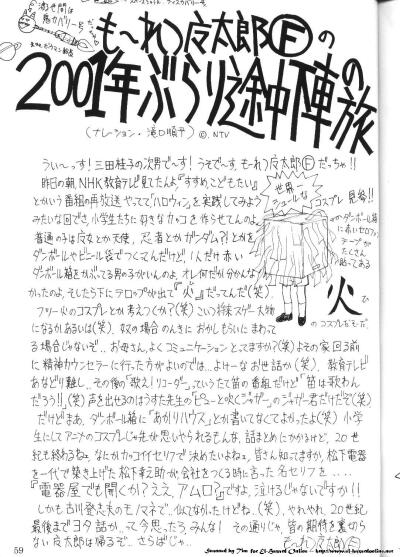 も～れつ
太郎Ⓕの
2001年ぶらり途中下車の旅
(ナレーション・滝口順平) ©NTV
うぃ～っす!三田桂子の次男で～す!うそで～す。も～れつ
太郎Ⓕだっちゃ!!
昨日の朝、NHK教育テレビ見てたんよ。『すすめこどもたい』
とかいう番組の再放送やってて「ハロウィン」を実践してみよう
みたいな回でさ、小学生たちに好きなカッコを作らせてんのよ。
普通の子は魔女とか天使、忍者とかガンダム?!とかを
ダンボールやビニール袋でつくてんだけど1人だけ赤い
ダンボール箱をかぶってる男の子がいんのよ。オレ何だか分かんな
かったのよ。そしたら下にテロップが出て『火』だってんだ(笑)。
世界一
シュールな
コスプレ
見参!!
のダンボール箱
に赤いセロファン
テープが
たくさん
貼ってある
火
ひ
のコスプレだも～だ。
フツー火のコスプレとか考えつくか?(笑)こいつ将来スゲー大物
になるかあるいは(笑)。奴の場合のんきにおかしもらいにまわって
る場合じゃないぞ‥お母さん、よくコミュニケーションとってますか?(笑)よその家回る前
に精神カウンセラーに行った方がよいのでは…よけーなお世話か(笑)。教育テレビ
あなどり難し‥その後の「歌え!リコーダー」っていうたて笛の番組だけど「笛は歌わん
だろう!!」(笑)
だけどまあ、ダンボール箱に「あかりハウス」とか書いてなくてよかったよ(笑)小学
生にしてアニメのコスプレじゃ
話まとめにかかるけど、20世
紀も終わるねぇ、なにかカッコイイセリフで決めたいよねぇ。皆さん知ってますか、松下電器
を一代で築き上げた松下幸之助が、会社をつくる時に言った名セリフを…
『電器屋でも開くか?ええ、アムロ?』ですよ。泣けるじゃないですか!!
しかも古川登志夫のモノマネで‥似てなかったけどね‥(笑)。やれやれ、20世紀
最後までヨタ話か‥って今思ったろみんな!その通りじゃ。皆の期待を裏切ら
ない
太郎は帰るぞ…さらばじゃ‥
も～れつ
太郎Ⓕ
59
Scanned by Tom for El-Hazard Online - http://www.el-hazardonline.net